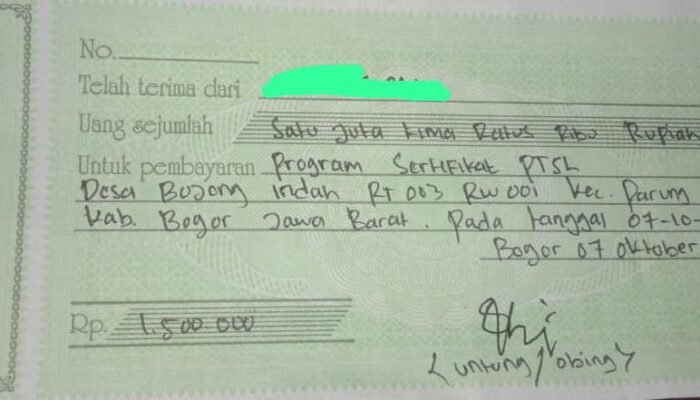 No.
Telah terima dari
Uang sejumlah Satu Juta Lima Ratus Ribu Rupiah
Untuk pembayaran Program Sertifikat PTSL
Desa Bojong Indah RT 003 RW 001 Kec. Parung
Kab. Bogor Jawa Barat. Pada tanggal 07-10-
Bogor 07 Oktober
Rp. 1.500.000
(Untung/obing)